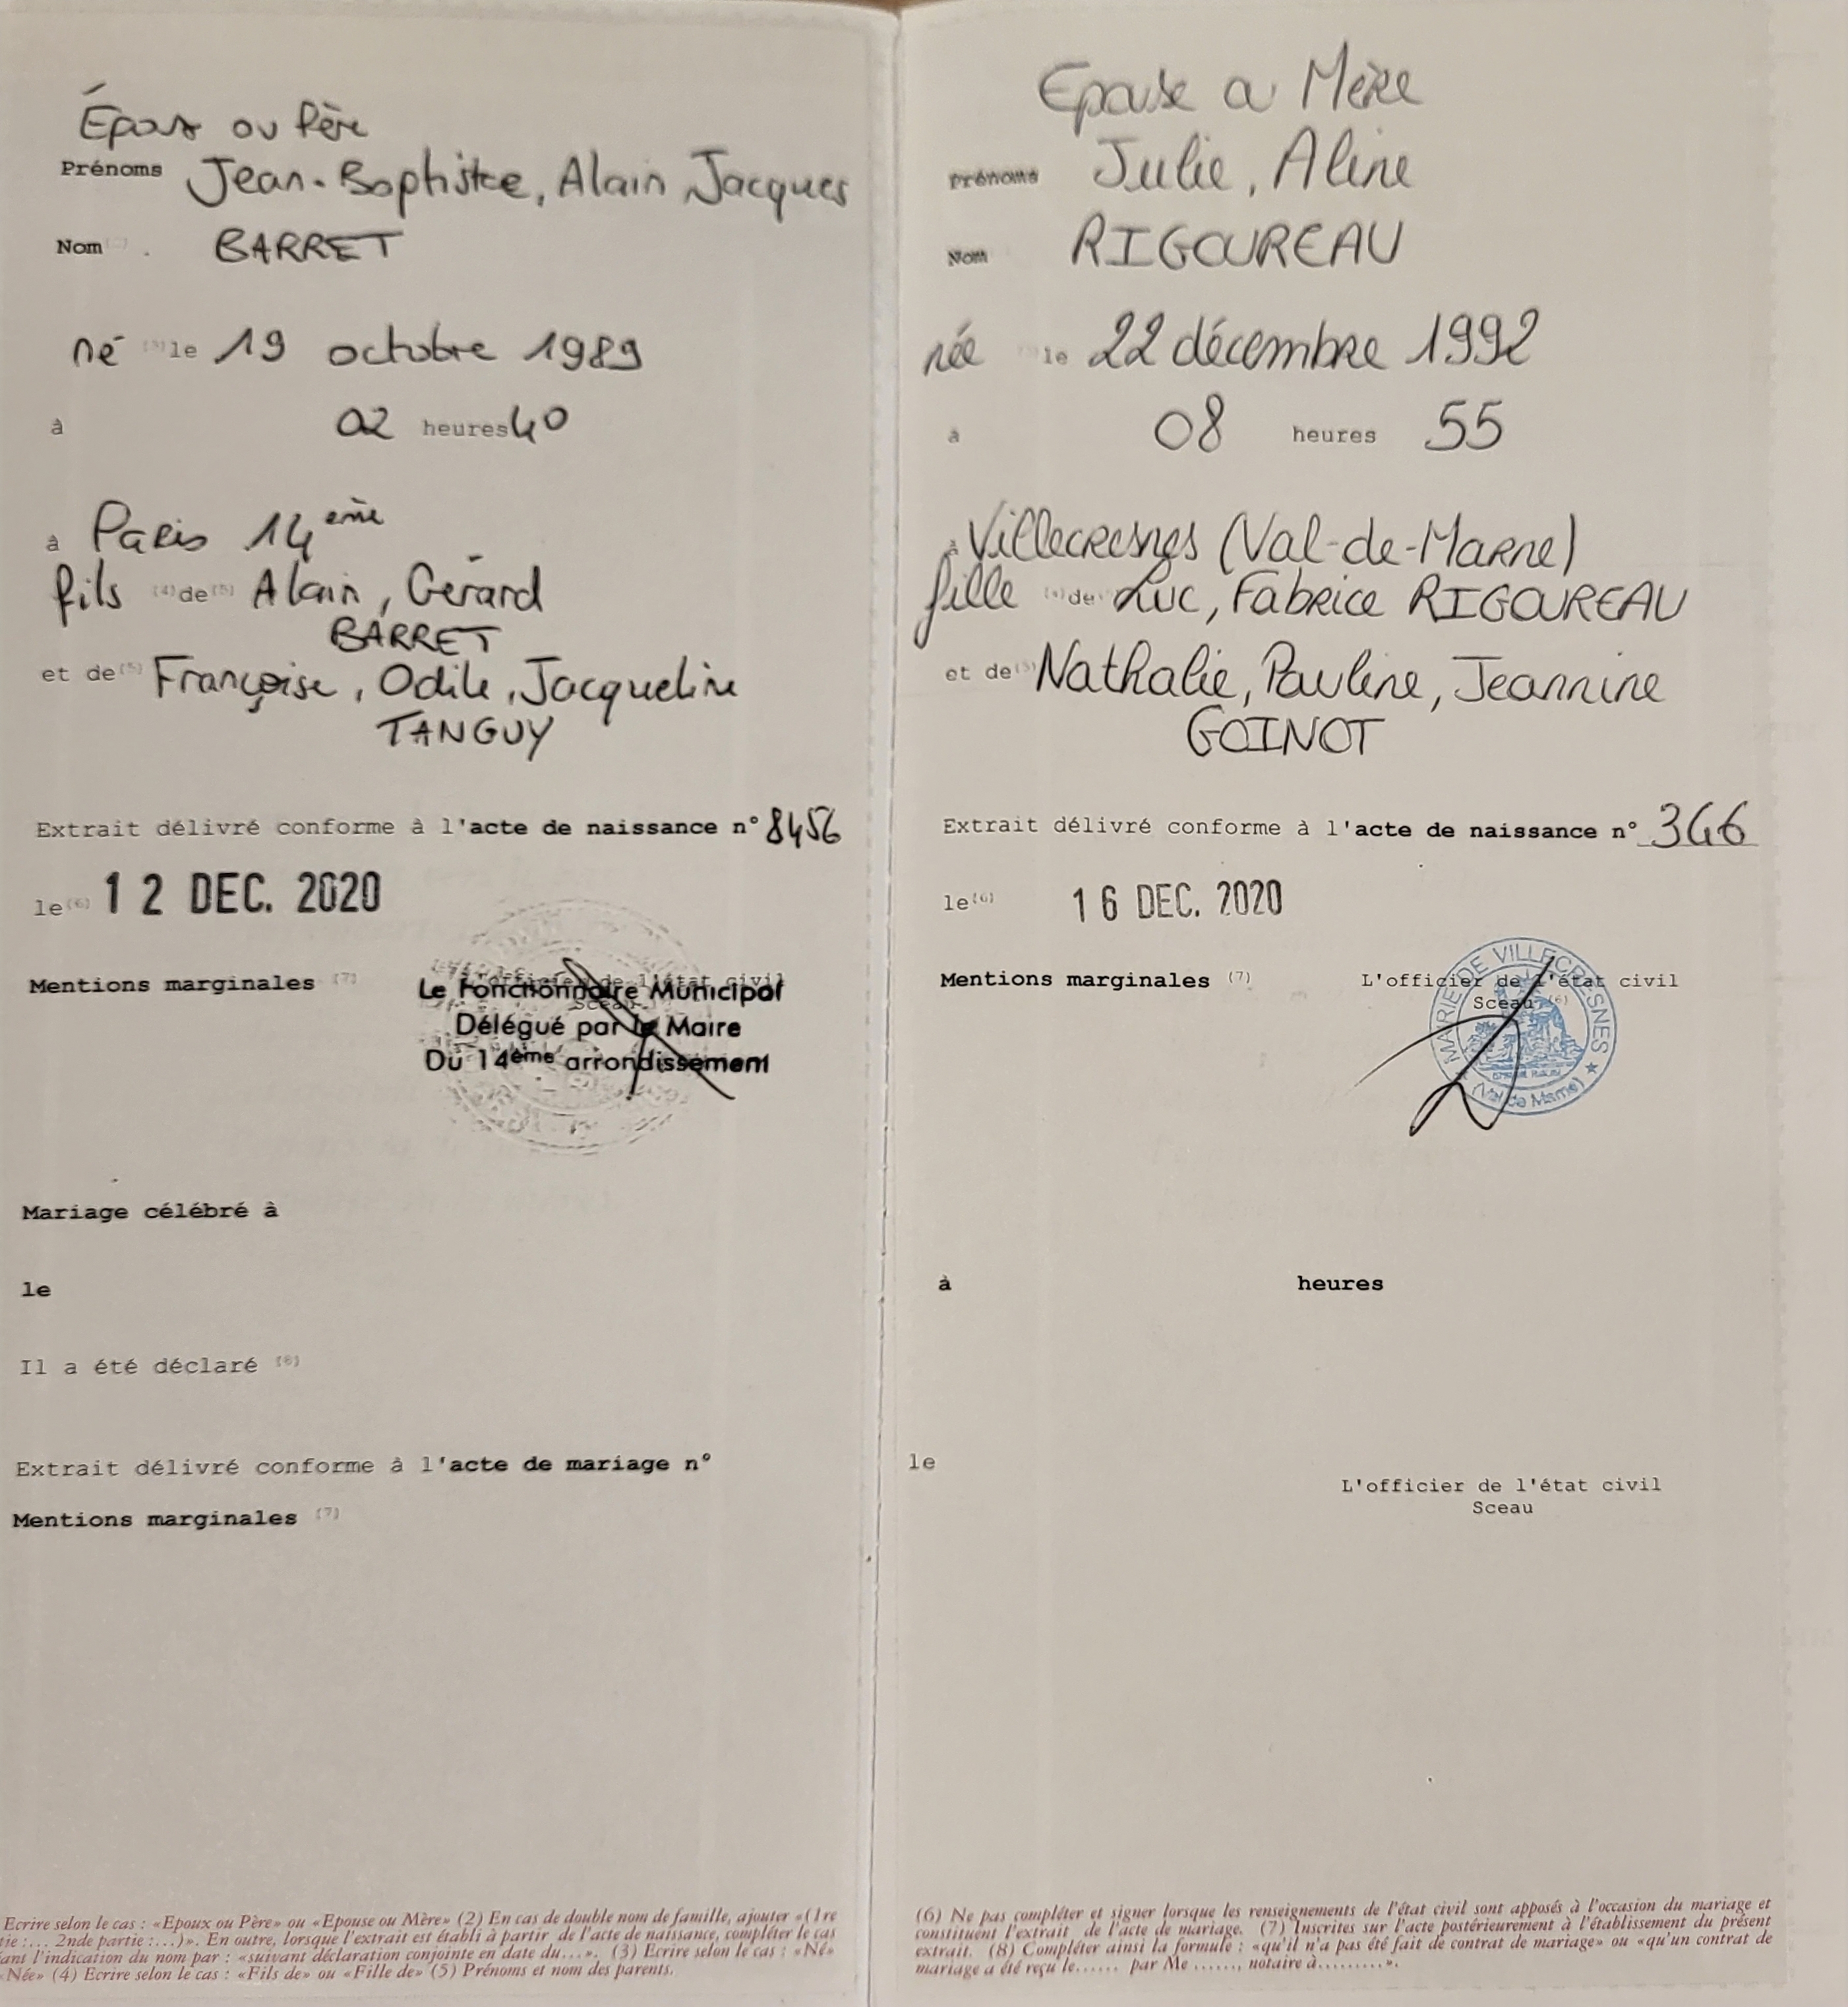 Époux ou Père
Prénoms Jean-Baptiste, Alain Jacques
Nom BARRET
né (3) le 19 octobre 1989
à 02 heures 40
à Paris 14ème
fils (4) de (5) Alain, Gérard
BARRET
et de (5) Françoise, Odile, Jacqueline
TANGUY
Extrait délivré conforme à l'acte de naissance n° 8456
le (6) 12 DEC. 2020
Mentions marginales (7)
L'officier de l'état civil
Sceau
Le Fonctionnaire Municipal
Délégué par le Maire
Du 14ème arrondissement
Mariage célébré à
le
Il a été déclaré (8)
Extrait délivré conforme à l'acte de mariage n°
Mentions marginales (7)
Ecrire selon le cas : «Epoux ou Père» ou «Epouse ou Mère» (2) En cas de double nom de famille, ajouter «(1re
tie :... 2nde partie :...)». En outre, lorsque l'extrait est établi à partir de l'acte de naissance, compléter le cas
ant l'indication du nom par : «suivant déclaration conjointe en date du...». (3) Ecrire selon le cas : «Né»
«Née» (4) Ecrire selon le cas : «Fils de» ou «Fille de» (5) Prénoms et nom des parents.
Epouse ou Mère
Prénoms Julie, Aline
Nom RIGOUREAU
née le 22 décembre 1992
à 08 heures 55
à Villecresnes (Val-de-Marne)
fille (4) de Luc, Fabrice RIGOUREAU
et de (5) Nathalie, Pauline, Jeannine
GOINOT
Extrait délivré conforme à l'acte de naissance n° 366
le (6) 16 DEC. 2020
Mentions marginales (7)
L'officier de l'état civil
Sceau (6)
MAIRIE DE VILLECRESNES
(Val de Marne)
à heures
le
L'officier de l'état civil
Sceau
(6) Ne pas compléter et signer lorsque les renseignements de l'état civil sont apposés à l'occasion du mariage et
constituent l'extrait de l'acte de mariage. (7) Inscrites sur l'acte postérieurement à l'établissement du présent
extrait. (8) Compléter ainsi la formule : «qu'il n'a pas été fait de contrat de mariage» ou «qu'un contrat de
mariage a été reçu le...... par Me ......, notaire à.........».